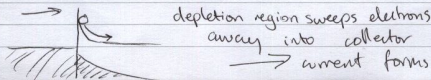 depletion region sweeps electrons
away into collector
→ current forms